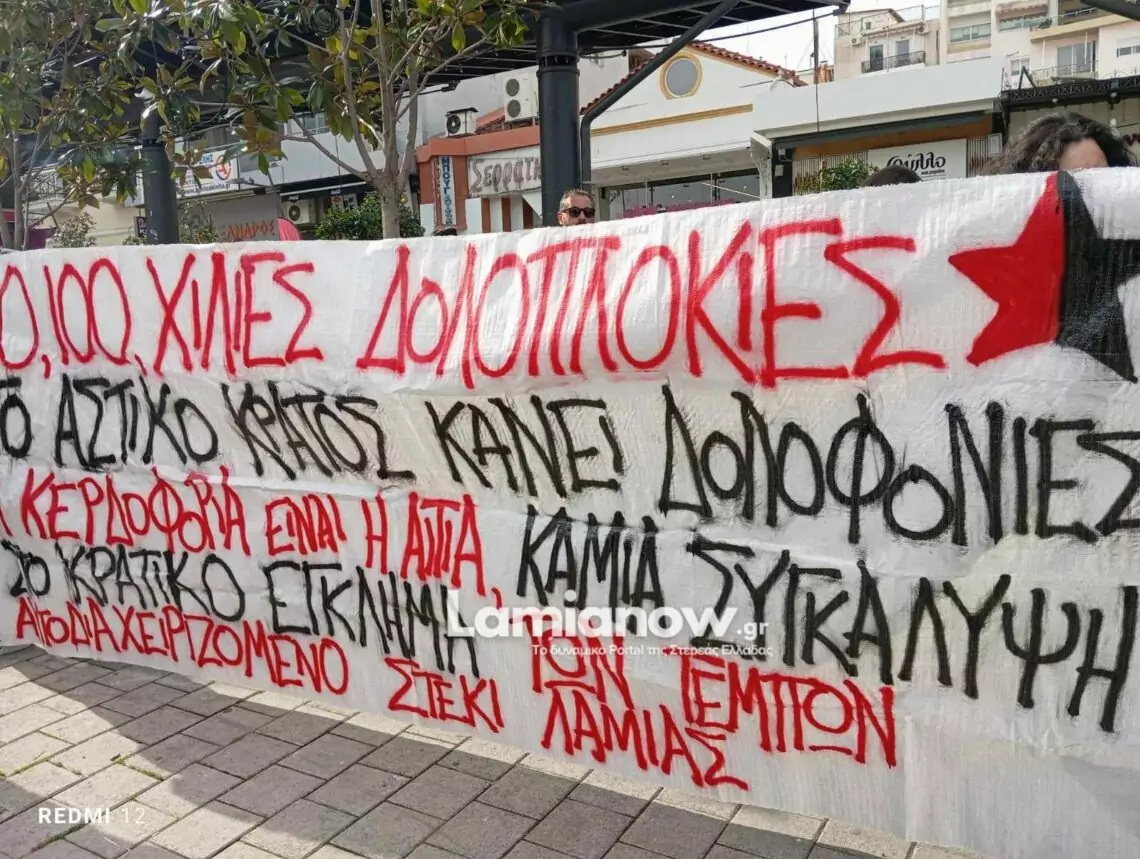 ΣΕΡΡΑΙΚ
ΜΠΟΥΓ
φύλλο
ΞΑΝΔΡΟΣ
0, 100, ΧΙΛΙΕΣ ΔΟΛΟΠΛΟΚΙΕΣ
ΤΟ ΑΣΤΙΚΟ ΚΡΑΤΟΣ ΚΑΝΕΙ ΔΟΛΟΦΟΝΙΕΣ
ΚΕΡΔΟΦΟΡΙΑ ΕΙΝΑΙ Η ΑΙΤΙΑ, ΚΑΜΙΑ ΣΥΓΚΑΛΥΨΗ
ΣΤΟ ΚΡΑΤΙΚΟ ΕΓΚΛΗΜΑ ΤΩΝ ΤΕΜΠΩΝ
ΑΥΤΟΔΙΑΧΕΙΡΙΖΟΜΕΝΟ ΣΤΕΚΙ ΛΑΜΙΑΣ
Lamianow.gr
Το δυναμικό Portal της Στερεάς Ελλάδας
REDMI 12